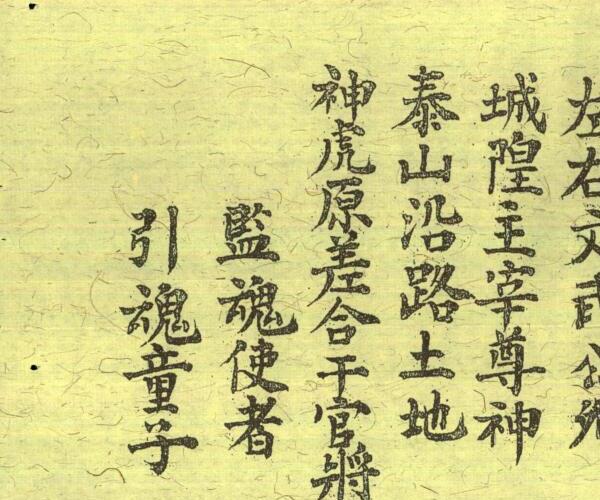 左右文武公
城隍主宰尊神
泰山沿路土地
神虎原差合干官將
監魂使者
引魂童子